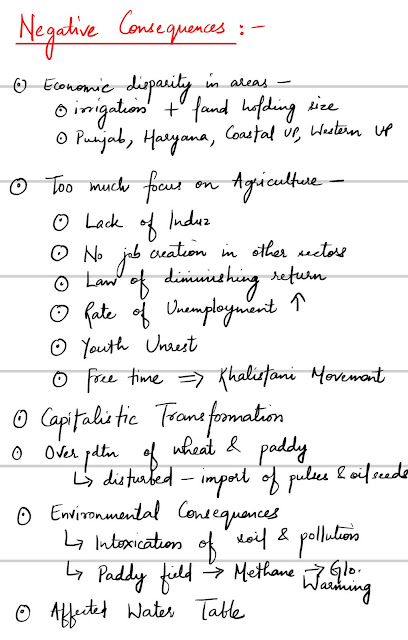 Negative Consequences :-
⊙ Economic disparity in areas –
⊙ irrigation + land holding size
⊙ Punjab, Haryana, Coastal UP, Western UP
⊙ Too much focus on Agriculture –
⊙ Lack of Induz
⊙ No job creation in other sectors
⊙ Law of diminishing return
⊙ Rate of Unemployment ↑
⊙ Youth Unrest
⊙ Free time ⇒ Khalistani Movement
⊙ Capitalistic Transformation
⊙ Over pdtn of wheat & paddy
↳ disturbed – import of pulses & oil seeds
⊙ Environmental Consequences
↳ Intoxication of soil & pollution
↳ Paddy field → Methane → Glo. Warming
⊙ Affected Water Table